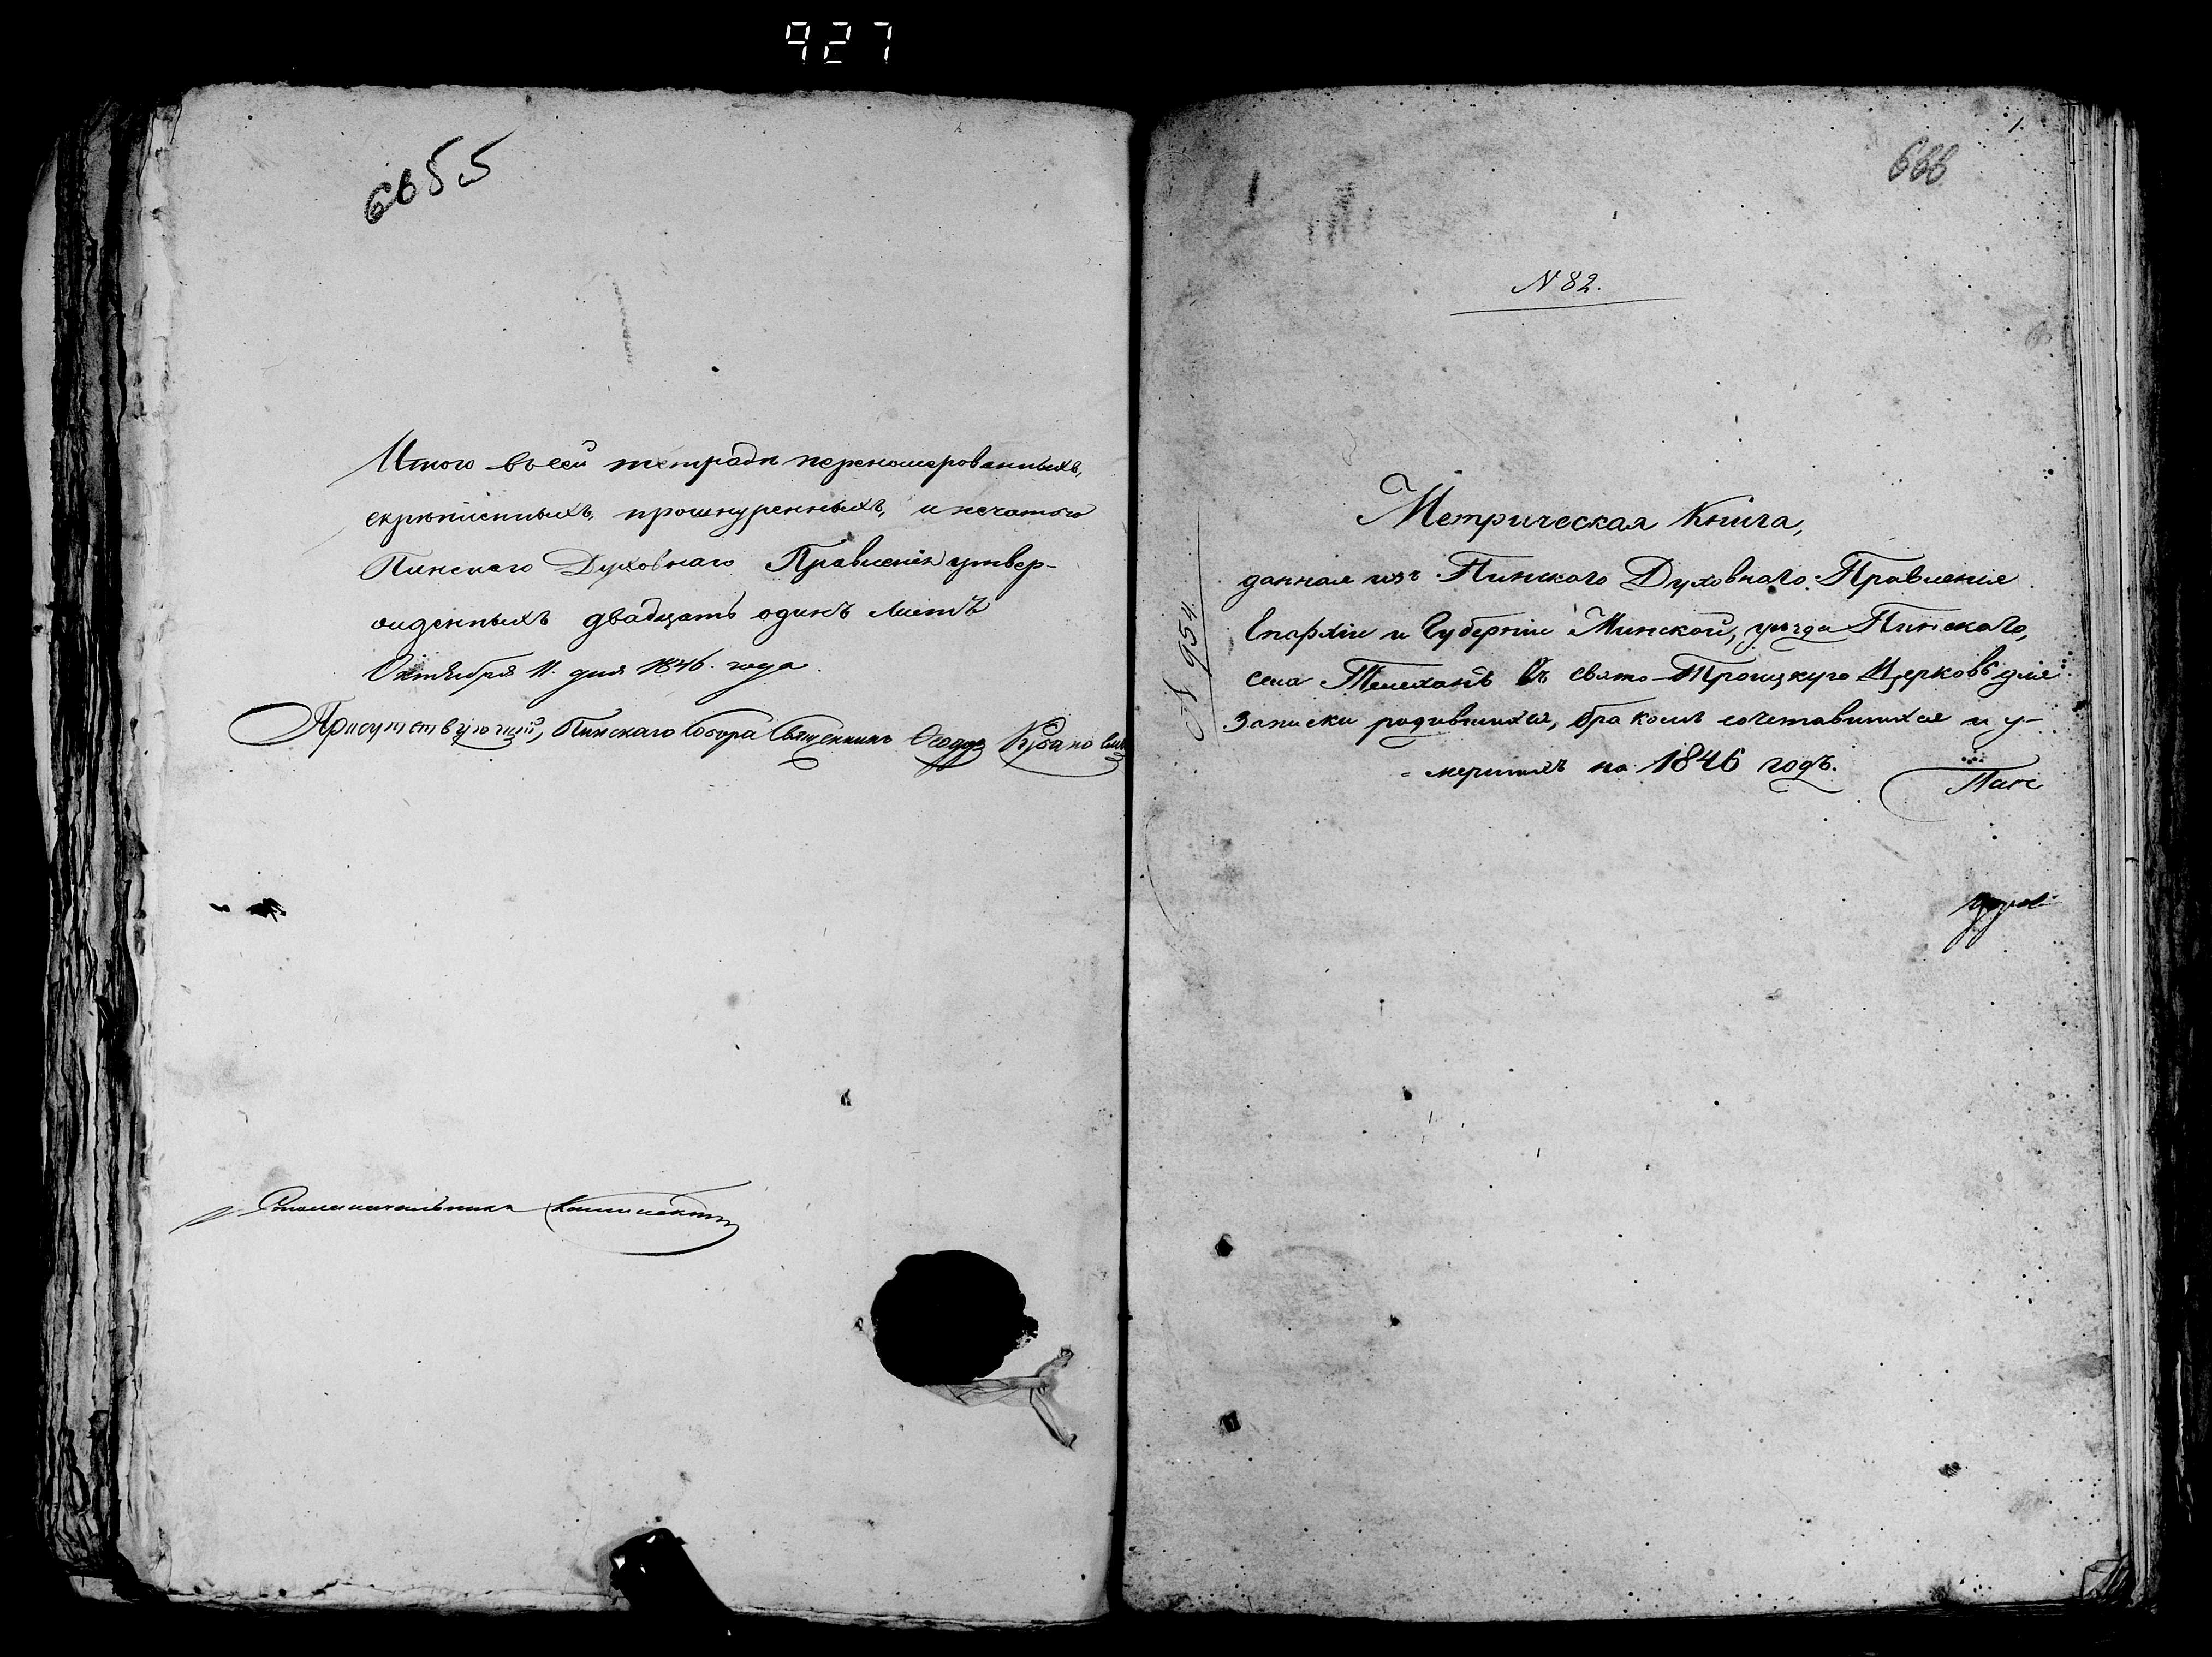 927
Итого въ сей тетради перекомерованныхъ,
скрѣпленныхъ, прошнуренныхъ, и печатью
Пинскаго Духовнаго Правленія утвер-
жденныхъ двадцать одинъ листъ
Октября 11. дня 1846. года.
Присутствующій, Пинскаго Собора Священникъ
Столоначальникъ
1.
666
N 82.
N 954.
Метрическая Книга,
данная изъ Пинскаго Духовнаго Правленія
Епархіи и Губерніи Минской, уѣзда Пинскаго,
села Телеханъ въ свято-Троицкую Церковь для
записки родившихся, бракомъ сочетавшихся и у-
мершихъ на 1846 годъ.